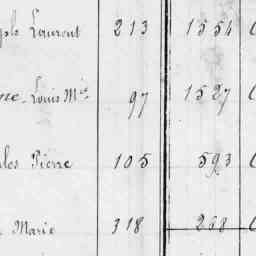 Laurent 213 1554
Louis Mie 97 1527
Pierre 105 593
Marie 318 268